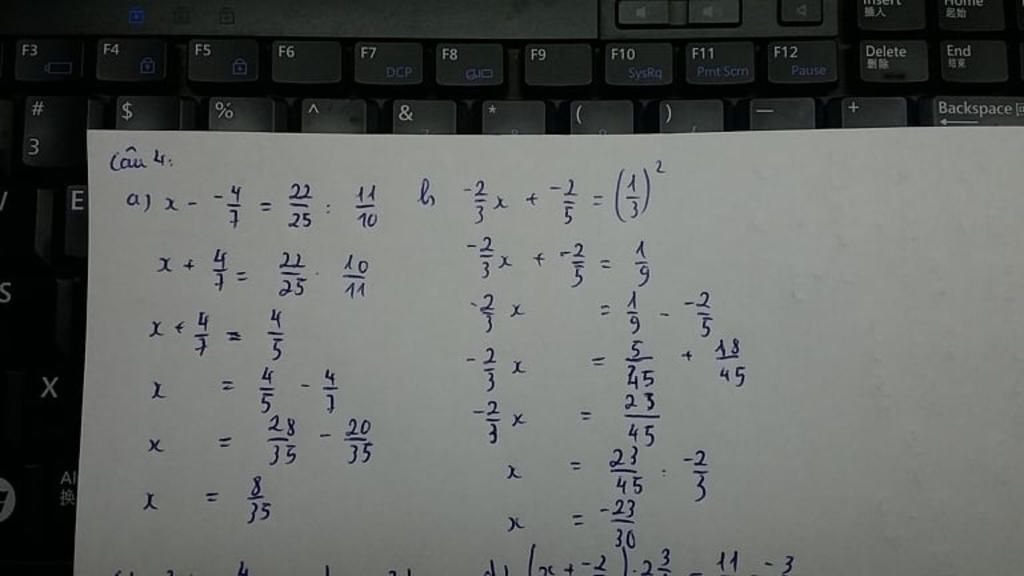 Insert 插入 Home 起始
F3 F4 F5 F6 F7 DCP F8 F9 F10 SysRq F11 Prnt Scrn F12 Pause Delete 刪除 End 結束
# 3 $ % ^ & * ( ) — + Backspace
E
S
X
Câu 4:
a) x - -4/7 = 22/25 : 11/10
x + 4/7 = 22/25 . 10/11
x + 4/7 = 4/5
x = 4/5 - 4/7
x = 28/35 - 20/35
x = 8/35
b) -2/3 x + -2/5 = (1/3)^2
-2/3 x + -2/5 = 1/9
-2/3 x = 1/9 - -2/5
-2/3 x = 5/45 + 18/45
-2/3 x = 23/45
x = 23/45 : -2/3
x = -23/30
d) (x + -2